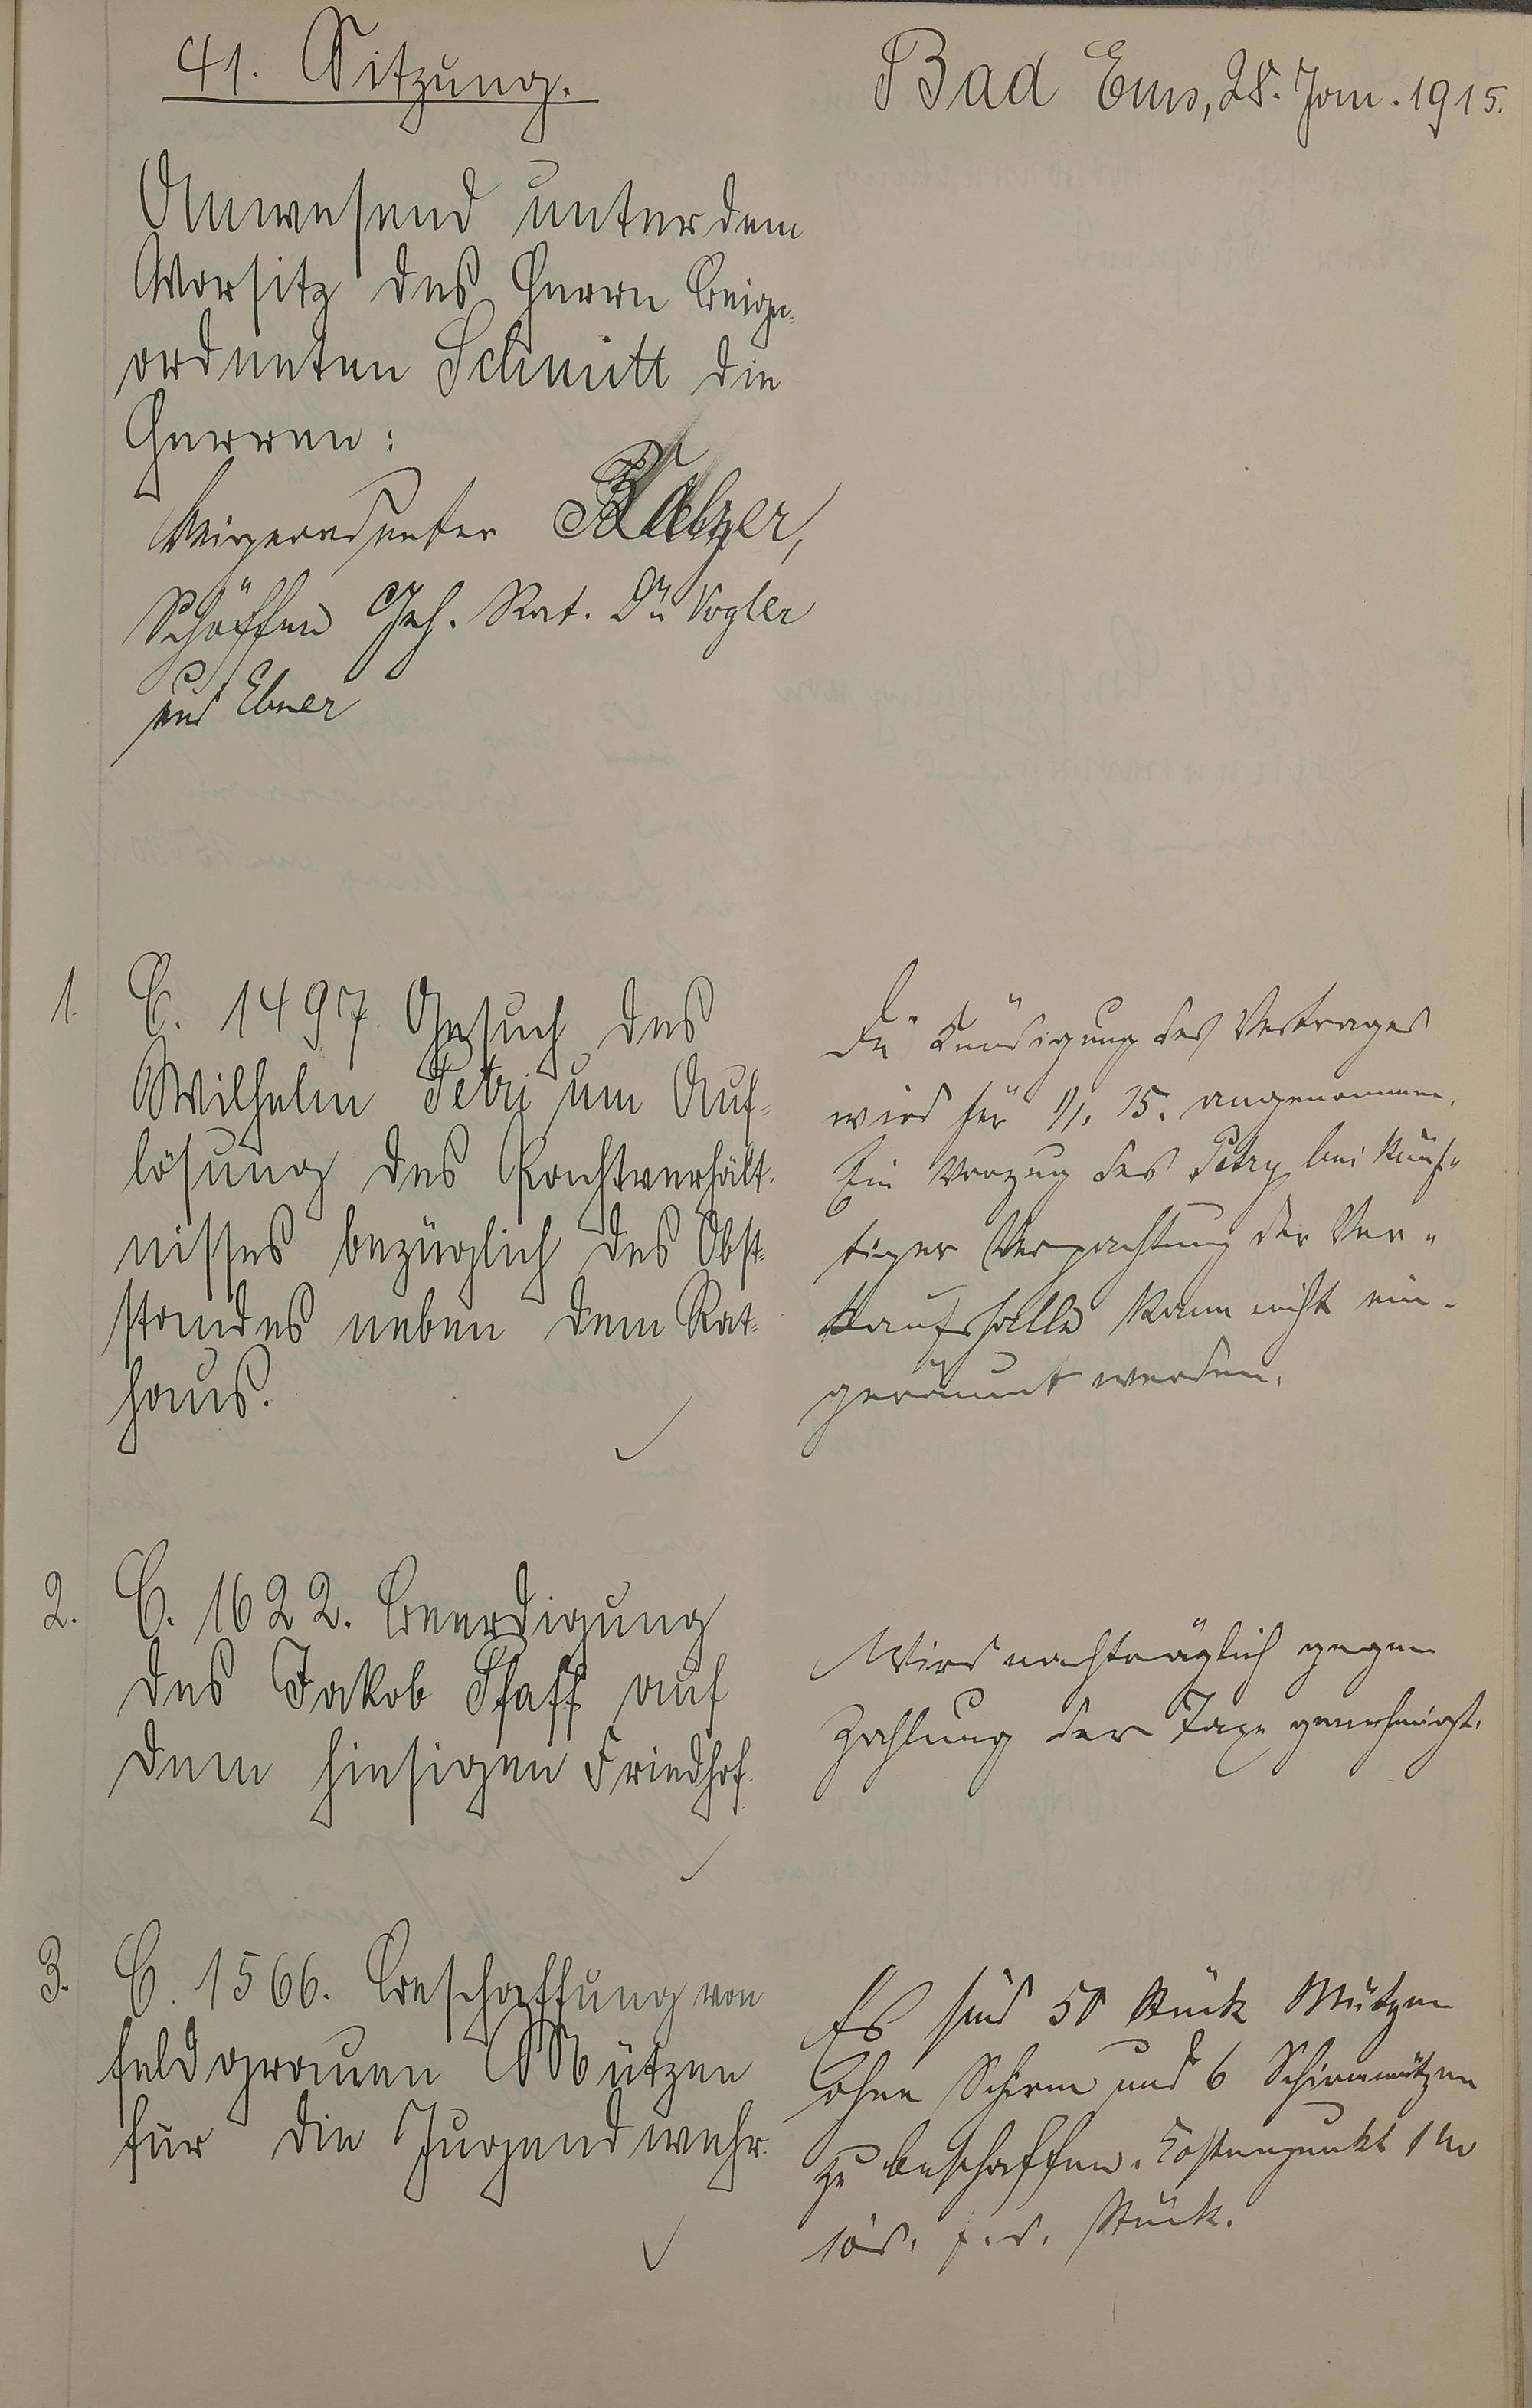 41. Sitzung.
Bad Ems, 28. Jan. 1915.
Anwesend unter dem
Vorsitz des Herrn Beige-
ordneten Schmitt die
Herren:
Beigeordneter Balzer,
Schöffen Geh. Rat. Dr. Vogler
und Ebner
1. C. 1497 Gesuch des
Wilhelm Petri um Auf-
lösung des Pachtverhält-
nisses bezüglich des Obst-
standes neben dem Rat-
haus.
Die Kündigung des Vertrages
wird für 1/1. 15. angenommen.
Ein Vorzug des Petry bei künf-
tiger Verpachtung der Ver-
kaufshalle kann nicht ein-
geräumt werden.
2. C. 1622. Beerdigung
des Jakob Pfaff auf
dem hiesigen Friedhof.
Wird nachträglich gegen
Zahlung der Taxe genehmigt.
3. C. 1566. Beschaffung von
feldgrauen Mützen
für die Jugendwehr.
Es sind 50 Stück Mützen
ohne Schirm und 6 Schirmmützen
zu beschaffen. Kostenpunkt 1 M
10 d. p. d. Stück.